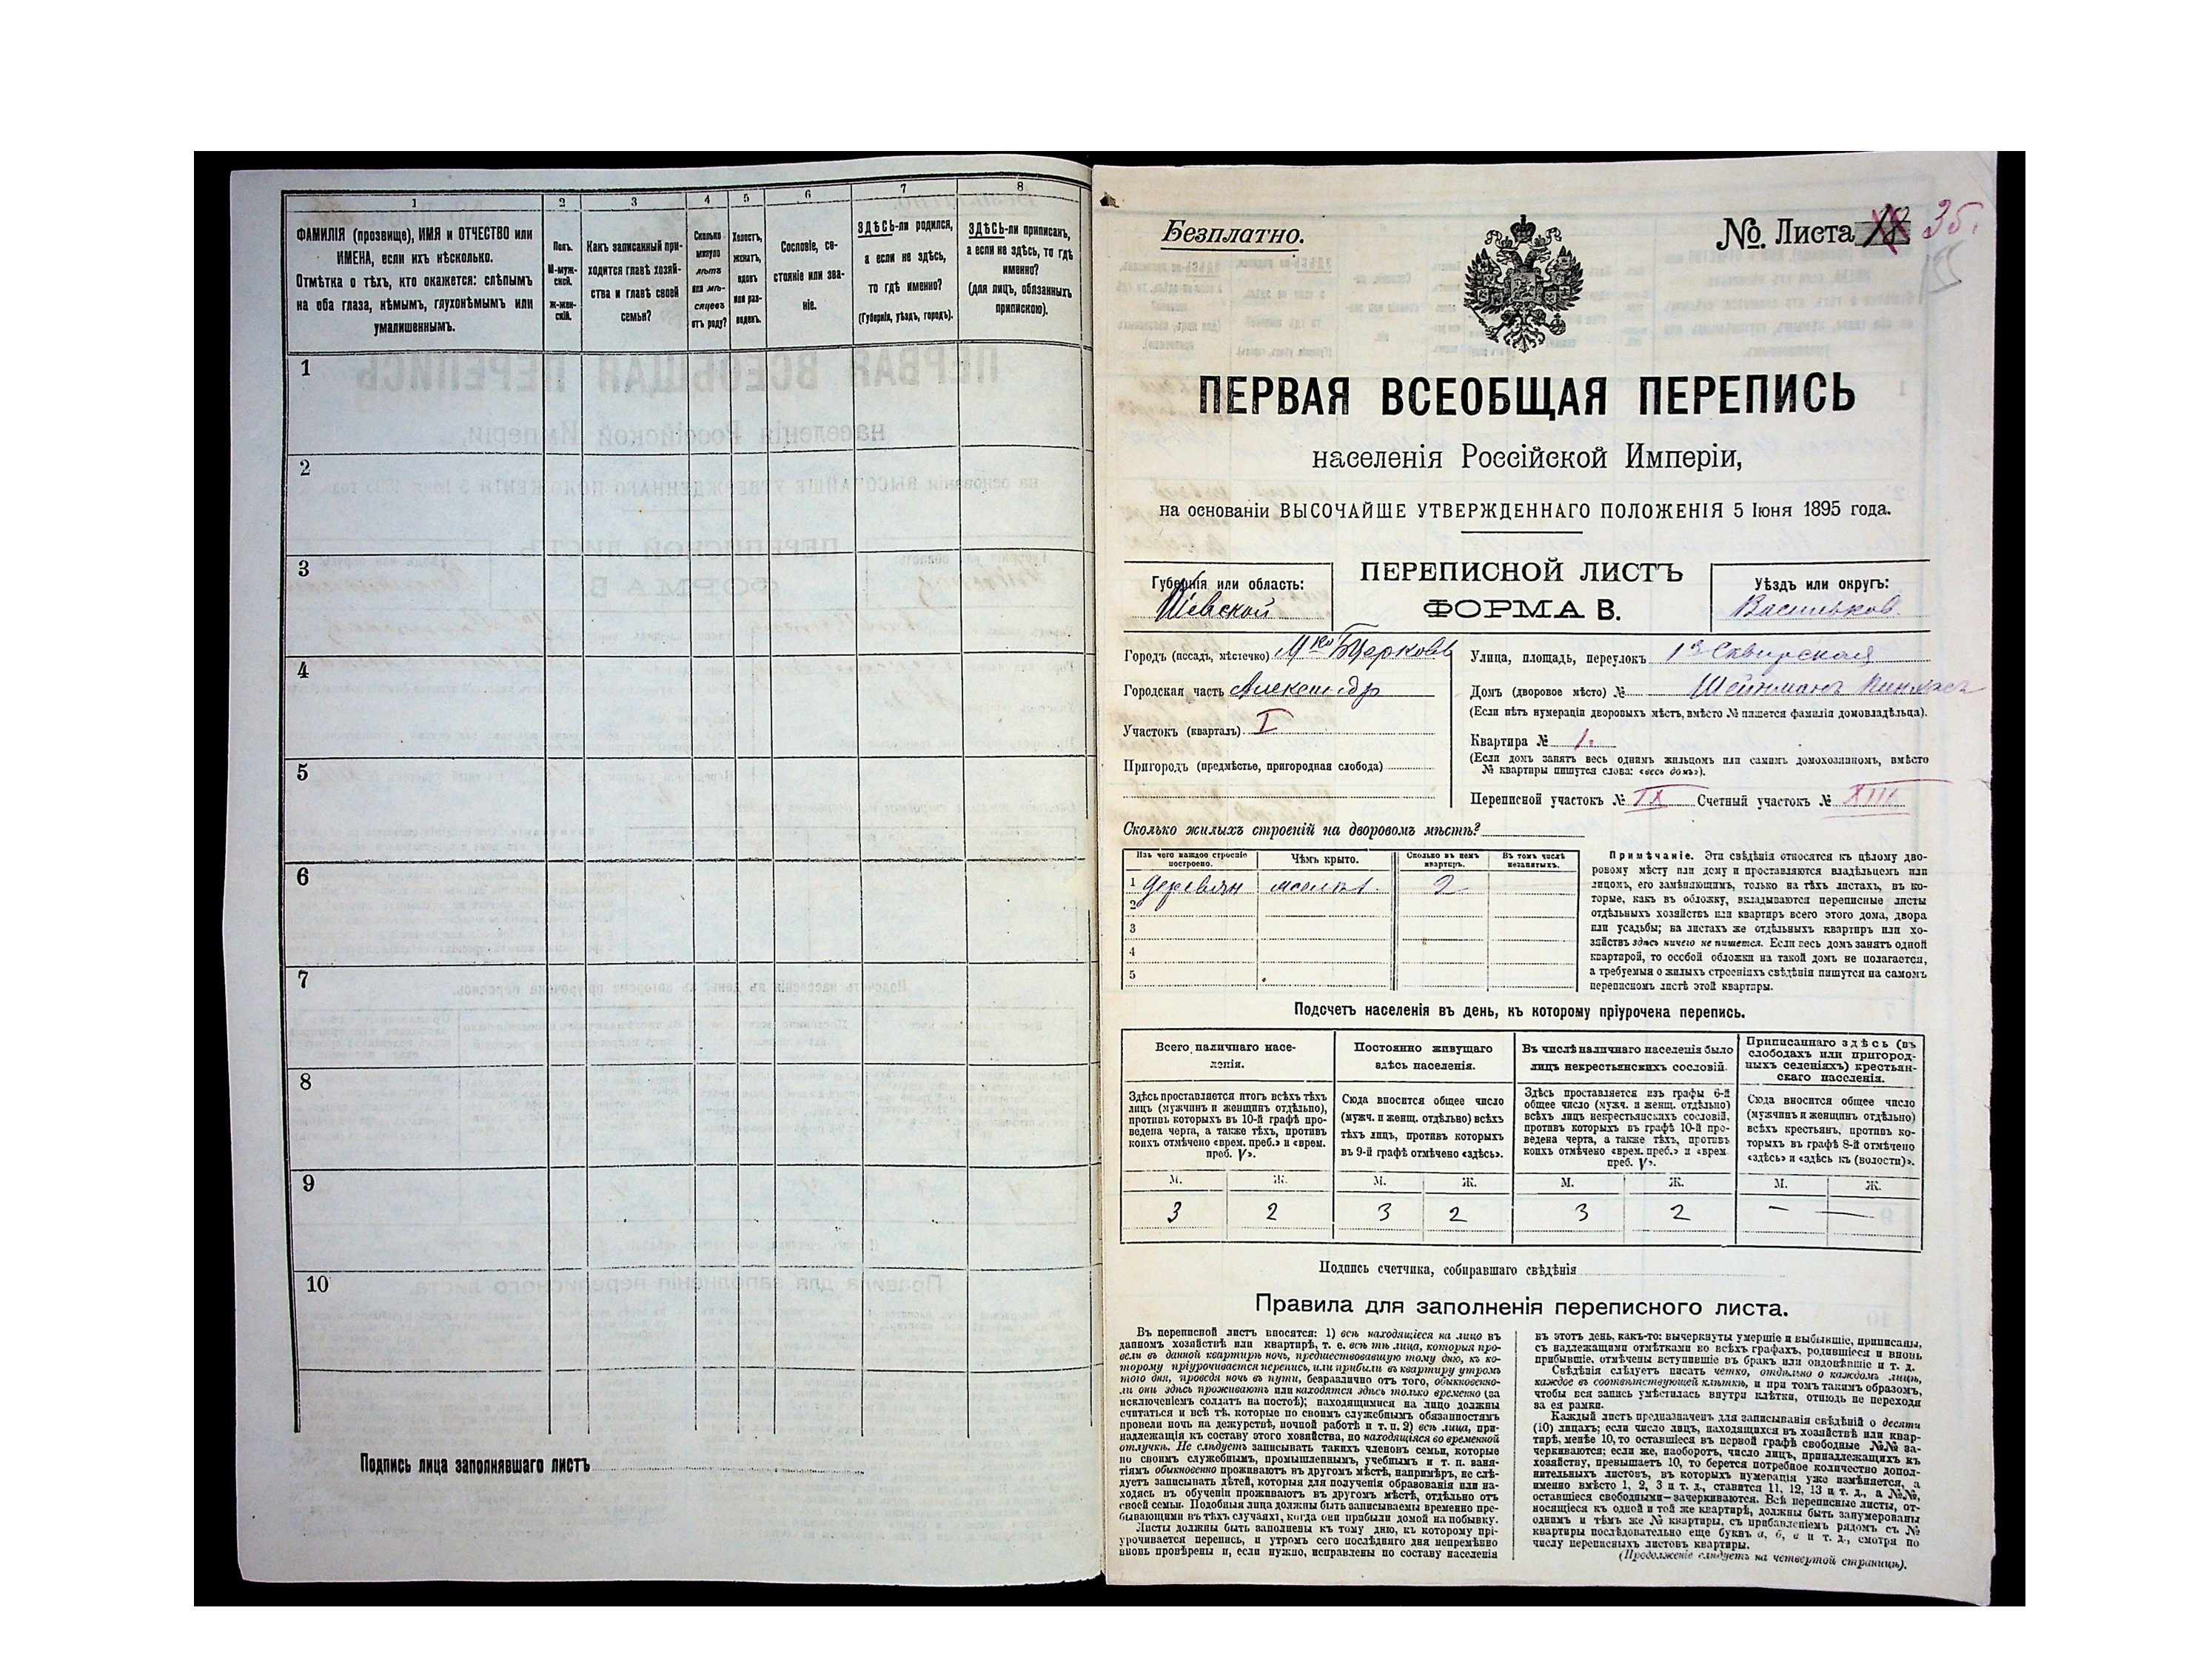 1
2
3
4
5
6
7
8
ФАМИЛІЯ (прозвище), ИМЯ и ОТЧЕСТВО или
ИМЕНА, если ихъ нѣсколько.
Отмѣтка о тѣхъ, кто окажется: слѣпымъ
на оба глаза, нѣмымъ, глухонѣмымъ или
умалишеннымъ.
Полъ.
М-муж-
ской.
Ж-жен-
скій.
Какъ записанный при-
ходится главѣ хозяй-
ства и главѣ своей
семьи?
Сколько
минуло
лѣтъ
или мѣ-
сяцевъ
отъ роду?
Холостъ,
женатъ,
вдовъ
или раз-
веденъ.
Сословіе, со-
стояніе или зва-
ніе.
ЗДѢСЬ-ли родился,
а если не здѣсь,
то гдѣ именно?
(Губернія, уѣздъ, городъ).
ЗДѢСЬ-ли приписанъ,
а если не здѣсь, то гдѣ
именно?
(для лицъ, обязанныхъ
припискою).
1
2
3
4
5
6
7
8
9
10
Подпись лица заполнявшаго листъ
Безплатно.
№. Листа 35.
ПЕРВАЯ ВСЕОБЩАЯ ПЕРЕПИСЬ
населенія Россійской Имперіи,
на основаніи ВЫСОЧАЙШЕ УТВЕРЖДЕННАГО ПОЛОЖЕНІЯ 5 Іюня 1895 года.
Губернія или область:
Кіевской
ПЕРЕПИСНОЙ ЛИСТЪ
ФОРМА В.
Уѣздъ или округъ:
Васильков.
Городъ (посадъ, мѣстечко) М-ко БЦерковь
Городская часть Александр
Участокъ (кварталъ) I
Пригородъ (предмѣстье, пригородная слобода)
Улица, площадь, переулокъ 1я Сквирская
Домъ (дворовое мѣсто) № Шейнманъ Пинхасъ
(Если нѣтъ нумераціи дворовыхъ мѣстъ, вмѣсто № пишется фамилія домовладѣльца).
Квартира № 1.
(Если домъ занятъ весь однимъ жильцомъ или самимъ домохозяиномъ, вмѣсто
№ квартиры пишутся слова: «весь домъ»).
Переписной участокъ № IX Счетный участокъ № XIII
Сколько жилыхъ строеній на дворовомъ мѣстѣ?
Изъ чего каждое строеніе
построено.
Чѣмъ крыто.
Сколько въ немъ
квартиръ.
Въ томъ числѣ
незанятыхъ.
1 деревян 2
2
3
4
5
Примѣчаніе. Эти свѣдѣнія относятся къ цѣлому дво-
ровому мѣсту или дому и проставляются владѣльцемъ или
лицомъ, его замѣняющимъ, только на тѣхъ листахъ, въ ко-
торые, какъ въ обложку, вкладываются переписные листы
отдѣльныхъ хозяйствъ или квартиръ всего этого дома, двора
или усадьбы; на листахъ же отдѣльныхъ квартиръ или хо-
зяйствъ здѣсь ничего не пишется. Если весь домъ занятъ одной
квартирой, то особой обложки на такой домъ не полагается,
а требуемыя о жилыхъ строеніяхъ свѣдѣнія пишутся на самомъ
переписномъ листѣ этой квартиры.
Подсчетъ населенія въ день, къ которому пріурочена перепись.
Всего наличнаго насе-
ленія.
Здѣсь проставляется итогъ всѣхъ тѣхъ
лицъ (мужчинъ и женщинъ отдѣльно),
противъ которыхъ въ 10-й графѣ про-
ведена черта, а также тѣхъ, противъ
коихъ отмѣчено «врем. преб.» и «врем.
преб. V».
М. Ж.
3 2
Постоянно живущаго
здѣсь населенія.
Сюда вносится общее число
(мужч. и женщ. отдѣльно) всѣхъ
тѣхъ лицъ, противъ которыхъ
въ 9-й графѣ отмѣчено «здѣсь».
М. Ж.
3 2
Въ числѣ наличнаго населенія было
лицъ некрестьянскихъ сословій.
Здѣсь проставляется изъ графы 6-й
общее число (мужч. и женщ. отдѣльно)
всѣхъ лицъ некрестьянскихъ сословій,
противъ которыхъ въ графѣ 10-й про-
ведена черта, а также тѣхъ, противъ
коихъ отмѣчено «врем. преб.» и «врем.
преб. V».
М. Ж.
3 2
Приписаннаго здѣсь (въ
слободахъ или пригород-
ныхъ селеніяхъ) крестьян-
скаго населенія.
Сюда вносится общее число
(мужчинъ и женщинъ отдѣльно)
всѣхъ крестьянъ, противъ ко-
торыхъ въ графѣ 8-й отмѣчено
«здѣсь» и «здѣсь къ (волости)».
М. Ж.
— —
Подпись счетчика, собиравшаго свѣдѣнія
Правила для заполненія переписного листа.
Въ переписной листъ вносятся: 1) всѣ находящіеся на лицо въ
данномъ хозяйствѣ или квартирѣ, т. е. всѣ тѣ лица, которыя про-
вели въ данной квартирѣ ночь, предшествовавшую тому дню, къ ко-
торому пріурочивается перепись, или прибыли въ квартиру утромъ
того дня, проведя ночь въ пути, безразлично от того, обыкновенно-
ли они здѣсь проживаютъ или находятся здѣсь только временно (за
исключеніемъ солдатъ на постоѣ); находящимися на лицо должны
считаться и всѣ тѣ, которые по своимъ служебнымъ обязанностямъ
провели ночь на дежурствѣ, ночной работѣ и т. п. 2) всѣ лица, при-
надлежащія къ составу этого хозяйства, но находящіяся во временной
отлучкѣ. Не слѣдуетъ записывать такихъ членовъ семьи, которые
по своимъ служебнымъ, промышленнымъ, учебнымъ и т. п. заня-
тіямъ обыкновенно проживаютъ въ другомъ мѣстѣ, напримѣръ, не слѣ-
дуетъ записывать дѣтей, которыя для полученія образованія или на-
ходясь въ обученіи проживаютъ въ другомъ мѣстѣ, отдѣльно отъ
своей семьи. Подобныя лица должны быть записываемы временно пре-
бывающими въ тѣхъ случаяхъ, когда они прибыли домой на побывку.
Листы должны быть заполнены къ тому дню, къ которому прі-
урочивается перепись, и утромъ сего послѣдняго дня непремѣнно
вновь провѣрены и, если нужно, исправлены по составу населенія
въ этотъ день, какъ-то: вычеркнуты умершіе и выбывшіе, приписаны,
съ надлежащими отмѣтками во всѣхъ графахъ, родившіеся и вновь
прибывшіе, отмѣчены вступившіе въ бракъ или овдовѣвшіе и т. д.
Свѣдѣнія слѣдуетъ писать четко, отдѣльно о каждомъ лицѣ,
каждое въ соотвѣтствующей клѣткѣ, и при томъ такимъ образомъ,
чтобы вся запись умѣстилась внутри клѣтки, отнюдь не переходя
за ея рамки.
Каждый листъ предназначенъ для записыванія свѣдѣній о десяти
(10) лицахъ; если число лицъ, находящихся въ хозяйствѣ или квар-
тирѣ, менѣе 10, то оставшіеся въ первой графѣ свободные №№ за-
черкиваются; если же, наоборотъ, число лицъ, принадлежащихъ къ
хозяйству, превышаетъ 10, то берется потребное количество допол-
нительныхъ листовъ, въ которыхъ нумерація уже измѣняется, а
именно вмѣсто 1, 2, 3 и т. д., ставится 11, 12, 13 и т. д., а №№,
оставшіеся свободными—зачеркиваются. Всѣ переписные листы, от-
носящіеся къ одной и той же квартирѣ, должны быть занумерованы
однимъ и тѣмъ же № квартиры, съ прибавленіемъ рядомъ съ №
квартиры послѣдовательно еще буквъ а, б, в и т. д., смотря по
числу переписныхъ листовъ квартиры.
(Продолженіе слѣдуетъ на четвертой страницѣ).